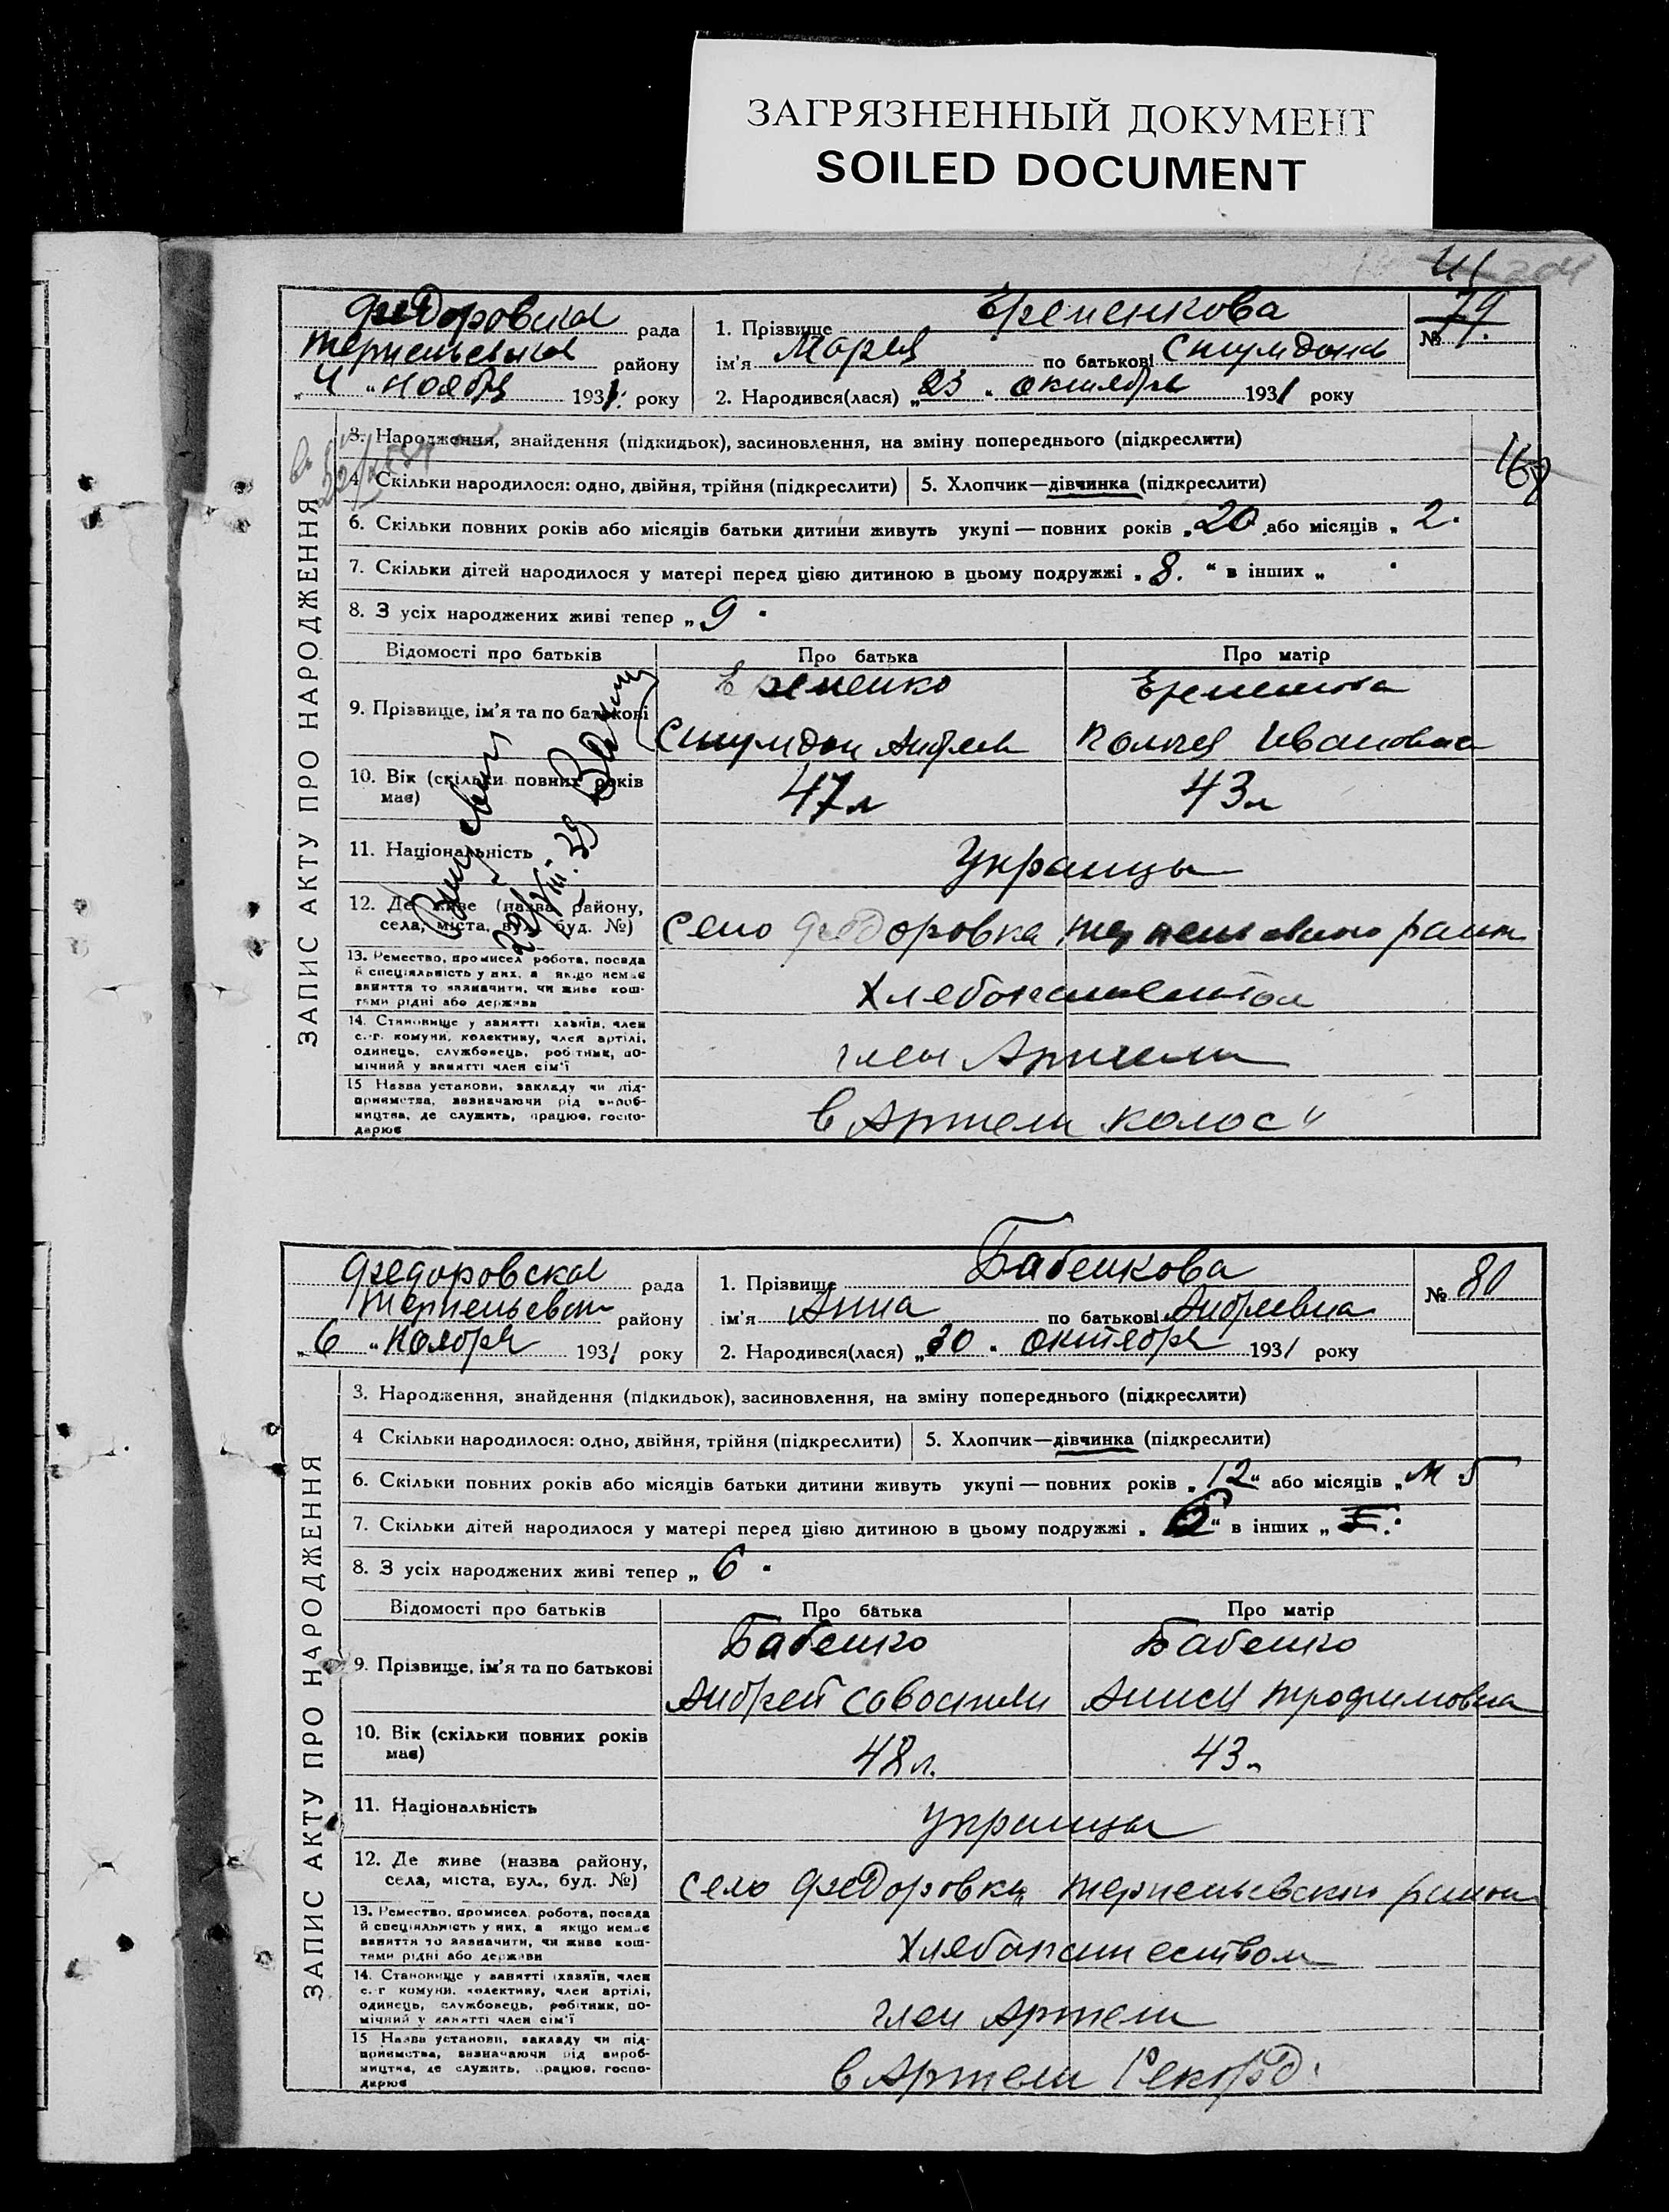 ЗАГРЯЗНЕННЫЙ ДОКУМЕНТ
SOILED DOCUMENT
41
Федоровская рада
района
„4“ ноября 1931 року
1. Прізвище Еременкова
ім'я Мария по батькові
2. Народився(лася) „23“ октября 1931 року
№ 79.
ЗАПИС АКТУ ПРО НАРОДЖЕННЯ
3. Народження, знайдення (підкидьок), засиновлення, на зміну попереднього (підкреслити)
4. Скільки народилося: одно, двійня, трійня (підкреслити)
5. Хлопчик—дівчинка (підкреслити)
6. Скільки повних років або місяців батьки дитини живуть укупі — повних років „20“ або місяців „2“
7. Скільки дітей народилося у матері перед цією дитиною в цьому подружжі „8.“ в інших „ “
8. З усіх народжених живі тепер „9“
Відомості про батьків
Про батька
Про матір
9. Прізвище, ім'я та по батькові
Еременко
Еременкова
Ивановна
10. Вік (скільки повних років має)
47л
43л
11. Національність
Украинцы
12. Де живе (назва району, села, міста, вул., буд. №)
Село Федоровка
13. Ремество, промисел, робота, посада
й спеціяльність у них, а якщо немає
заняття то зазначити, чи живе кош-
тами рідні або держави
14. Становище у занятті хазяїн, член
с.-г. комуни, колективу, член артілі,
одинець, службовець, робітник, по-
мічний у занятті член сім'ї
член Артели
15 Назва установи, закладу чи під-
приємства, зазначаючи рід вироб-
ництва, де служить, працює, госпо-
дарює
в Артели „Колос“
Федоровская рада
району
„6“ Ноября 1931 року
1. Прізвище Бабенкова
ім'я Анна по батькові Андреевна
2. Народився(лася) „30“ октября 1931 року
№ 80
ЗАПИС АКТУ ПРО НАРОДЖЕННЯ
3. Народження, знайдення (підкидьок), засиновлення, на зміну попереднього (підкреслити)
4 Скільки народилося: одно, двійня, трійня (підкреслити)
5. Хлопчик—дівчинка (підкреслити)
6. Скільки повних років або місяців батьки дитини живуть укупі — повних років „12“ або місяців „м 5
7. Скільки дітей народилося у матері перед цією дитиною в цьому подружжі „6“ в інших
8. З усіх народжених живі тепер „6“
Відомості про батьків
Про батька
Про матір
9. Прізвище, ім'я та по батькові
Бабенко
Бабенко
Андрей
Трофимовна
10. Вік (скільки повних років має)
48л.
43л
11. Національність
украинцы
12. Де живе (назва району, села, міста, вул., буд. №)
село Федоровка
13. Ремество, промисел, робота, посада
й спеціяльність у них, а якщо немає
заняття то зазначити, чи живе кош-
тами рідні або держави
хлебопашеством
14. Становище у занятті хазяїн, член
с.-г комуни, колективу, член артілі,
одинець, службовець, робітник, по-
мічний у занятті член сім'ї
член Артели
15 Назва установи, закладу чи під-
приємства, зазначаючи рід вироб-
ництва, де служить, працює, госпо-
дарює
в Артели Рекорд